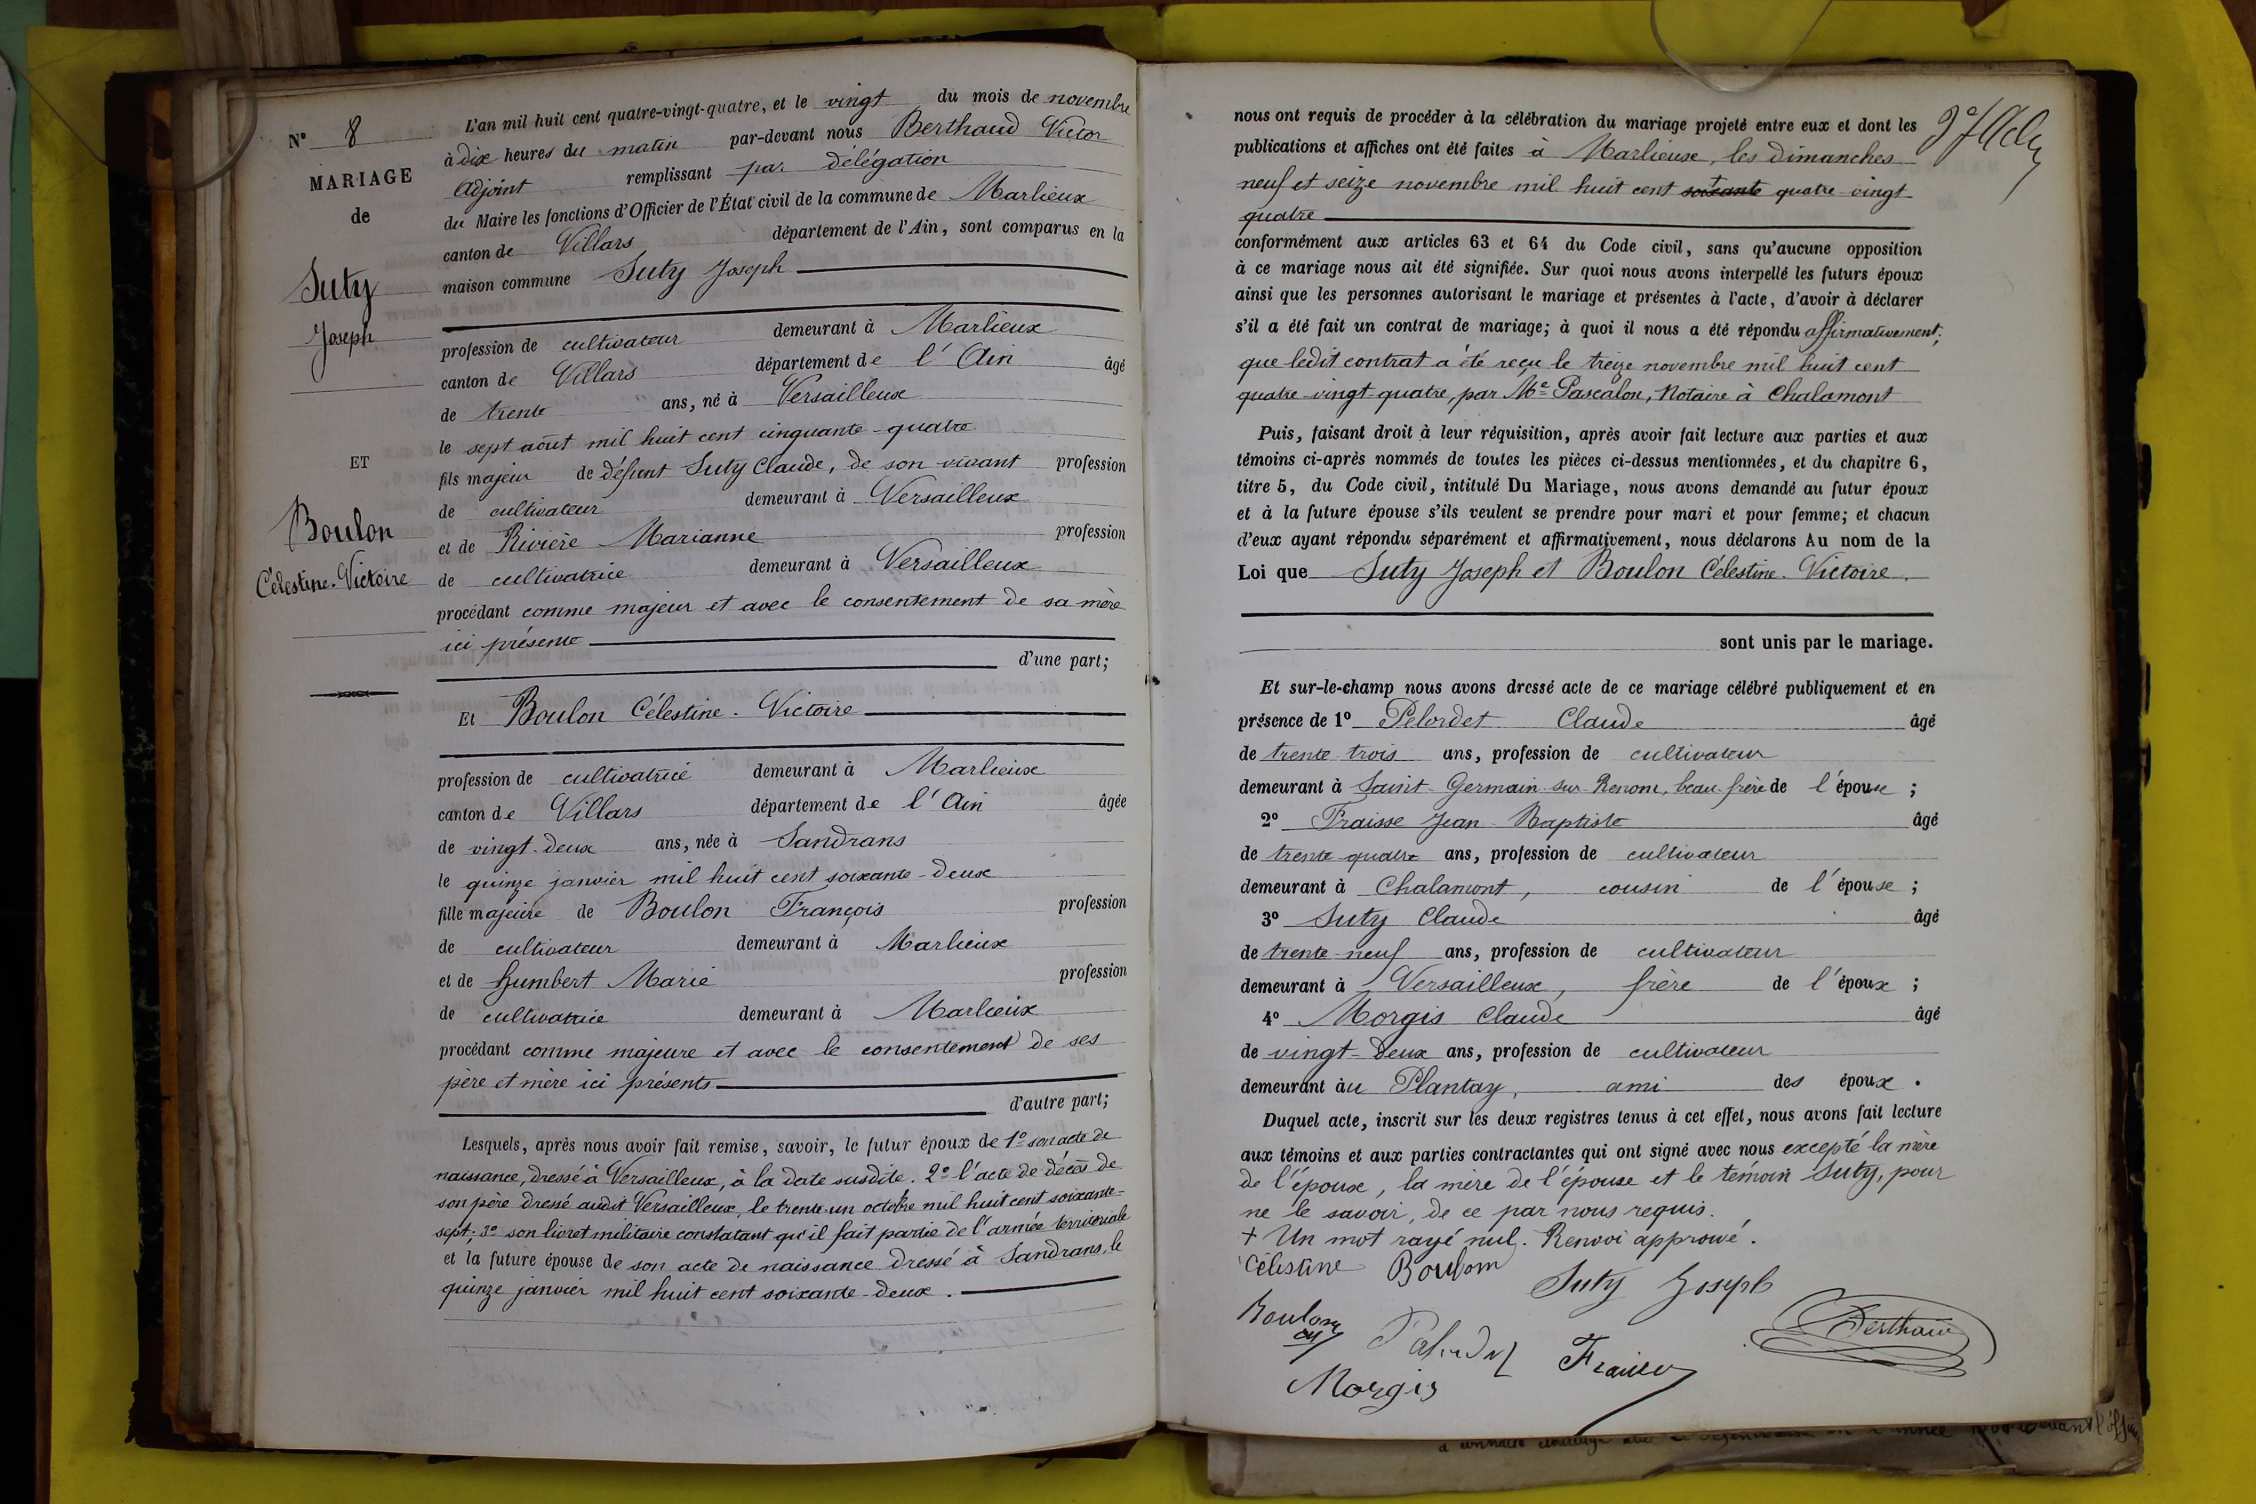 N° 8
MARIAGE
de
Suty
Joseph
ET
Boulon
Célestine-Victoire
L'an mil huit cent quatre-vingt-quatre, et le vingt du mois de novembre
à dix heures du matin par-devant nous Berthaud Victor
Adjoint remplissant par délégation
du Maire les fonctions d'Officier de l'État civil de la commune de Marlieux
canton de Villars département de l'Ain, sont comparus en la
maison commune Suty Joseph
profession de cultivateur demeurant à Marlieux
canton de Villars département de l'Ain âgé
de trente ans, né à Versailleux
le sept août mil huit cent cinquante-quatre
fils majeur de défunt Suty Claude, de son vivant profession
de cultivateur demeurant à Versailleux
et de Rivière Marianne profession
de cultivatrice demeurant à Versailleux
procédant comme majeur et avec le consentement de sa mère
ici présente
d'une part;
Et Boulon Célestine-Victoire
profession de cultivatrice demeurant à Marlieux
canton de Villars département de l'Ain âgée
de vingt-deux ans, née à Sandrans
le quinze janvier mil huit cent soixante-deux
fille majeure de Boulon François profession
de cultivateur demeurant à Marlieux
et de Humbert Marie profession
de cultivatrice demeurant à Marlieux
procédant comme majeure et avec le consentement de ses
père et mère ici présents
d'autre part;
Lesquels, après nous avoir fait remise, savoir, le futur époux de 1° son acte de
naissance, dressé à Versailleux, à la date susdite. 2° l'acte de décès de
son père dressé audit Versailleux, le trente-un octobre mil huit cent soixante-
sept; 3° son livret militaire constatant qu'il fait partie de l'armée territoriale
et la future épouse de son acte de naissance dressé à Sandrans, le
quinze janvier mil huit cent soixante-deux.
nous ont requis de procéder à la célébration du mariage projeté entre eux et dont les
publications et affiches ont été faites à Marlieux, les dimanches
neuf et seize novembre mil huit cent soixante + quatre-vingt
quatre
conformément aux articles 63 et 64 du Code civil, sans qu'aucune opposition
à ce mariage nous ait été signifiée. Sur quoi nous avons interpellé les futurs époux
ainsi que les personnes autorisant le mariage et présentes à l'acte, d'avoir à déclarer
s'il a été fait un contrat de mariage; à quoi il nous a été répondu affirmativement;
que ledit contrat a été reçu le treize novembre mil huit cent
quatre-vingt-quatre, par Me Pascalon, Notaire à Chalamont
Puis, faisant droit à leur réquisition, après avoir fait lecture aux parties et aux
témoins ci-après nommés de toutes les pièces ci-dessus mentionnées, et du chapitre 6,
titre 5, du Code civil, intitulé Du Mariage, nous avons demandé au futur époux
et à la future épouse s'ils veulent se prendre pour mari et pour femme; et chacun
d'eux ayant répondu séparément et affirmativement, nous déclarons Au nom de la
Loi que Suty Joseph et Boulon Célestine-Victoire.
sont unis par le mariage.
Et sur-le-champ nous avons dressé acte de ce mariage célébré publiquement et en
présence de 1° Pelordet Claude âgé
de trente trois ans, profession de cultivateur
demeurant à Saint-Germain-sur-Renom, beau-frère de l'épouse;
2° Fraisse Jean-Baptiste âgé
de trente-quatre ans, profession de cultivateur
demeurant à Chalamont, cousin de l'épouse;
3° Suty Claude âgé
de trente-neuf ans, profession de cultivateur
demeurant à Versailleux, frère de l'époux;
4° Morgis Claude âgé
de vingt-deux ans, profession de cultivateur
demeurant au Plantay, ami des époux.
Duquel acte, inscrit sur les deux registres tenus à cet effet, nous avons fait lecture
aux témoins et aux parties contractantes qui ont signé avec nous excepté la mère
de l'époux, la mère de l'épouse et le témoin Suty, pour
ne le savoir, de ce par nous requis.
+ Un mot rayé nul. Renvoi approuvé.
Célestine Boulon
Suty Joseph
Boulon
Berthaud
Fraisse
Morgis